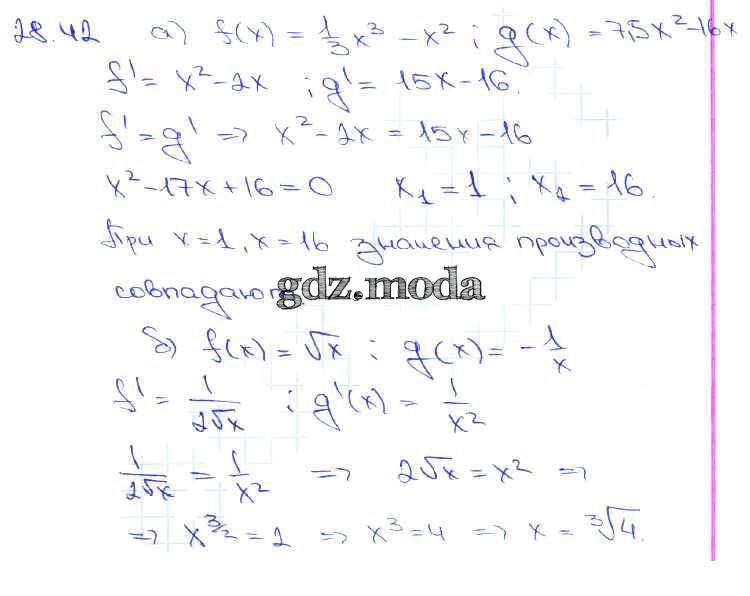 28.42 а) f(x) = 1/3 x³ − x² ; g(x) = 7,5x² − 16x
f' = x² − 2x ; g' = 15x − 16.
f' = g' => x² − 2x = 15x − 16
x² − 17x + 16 = 0 x₁ = 1 ; x₂ = 16.
При x = 1, x = 16 значения производных
совпадают.
gdz.moda
б) f(x) = √x ; g(x) = − 1/x
f' = 1/(2√x) ; g'(x) = 1/x²
1/(2√x) = 1/x² => 2√x = x² =>
=> x^(3/2) = 2 => x³ = 4 => x = ³√4.